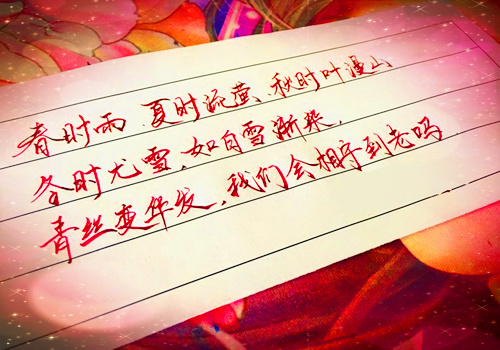 春时雨、夏时流萤、秋时叶漫山
冬时尤雪,如白雪渐染,
青丝变华发,我们会相守到老吗